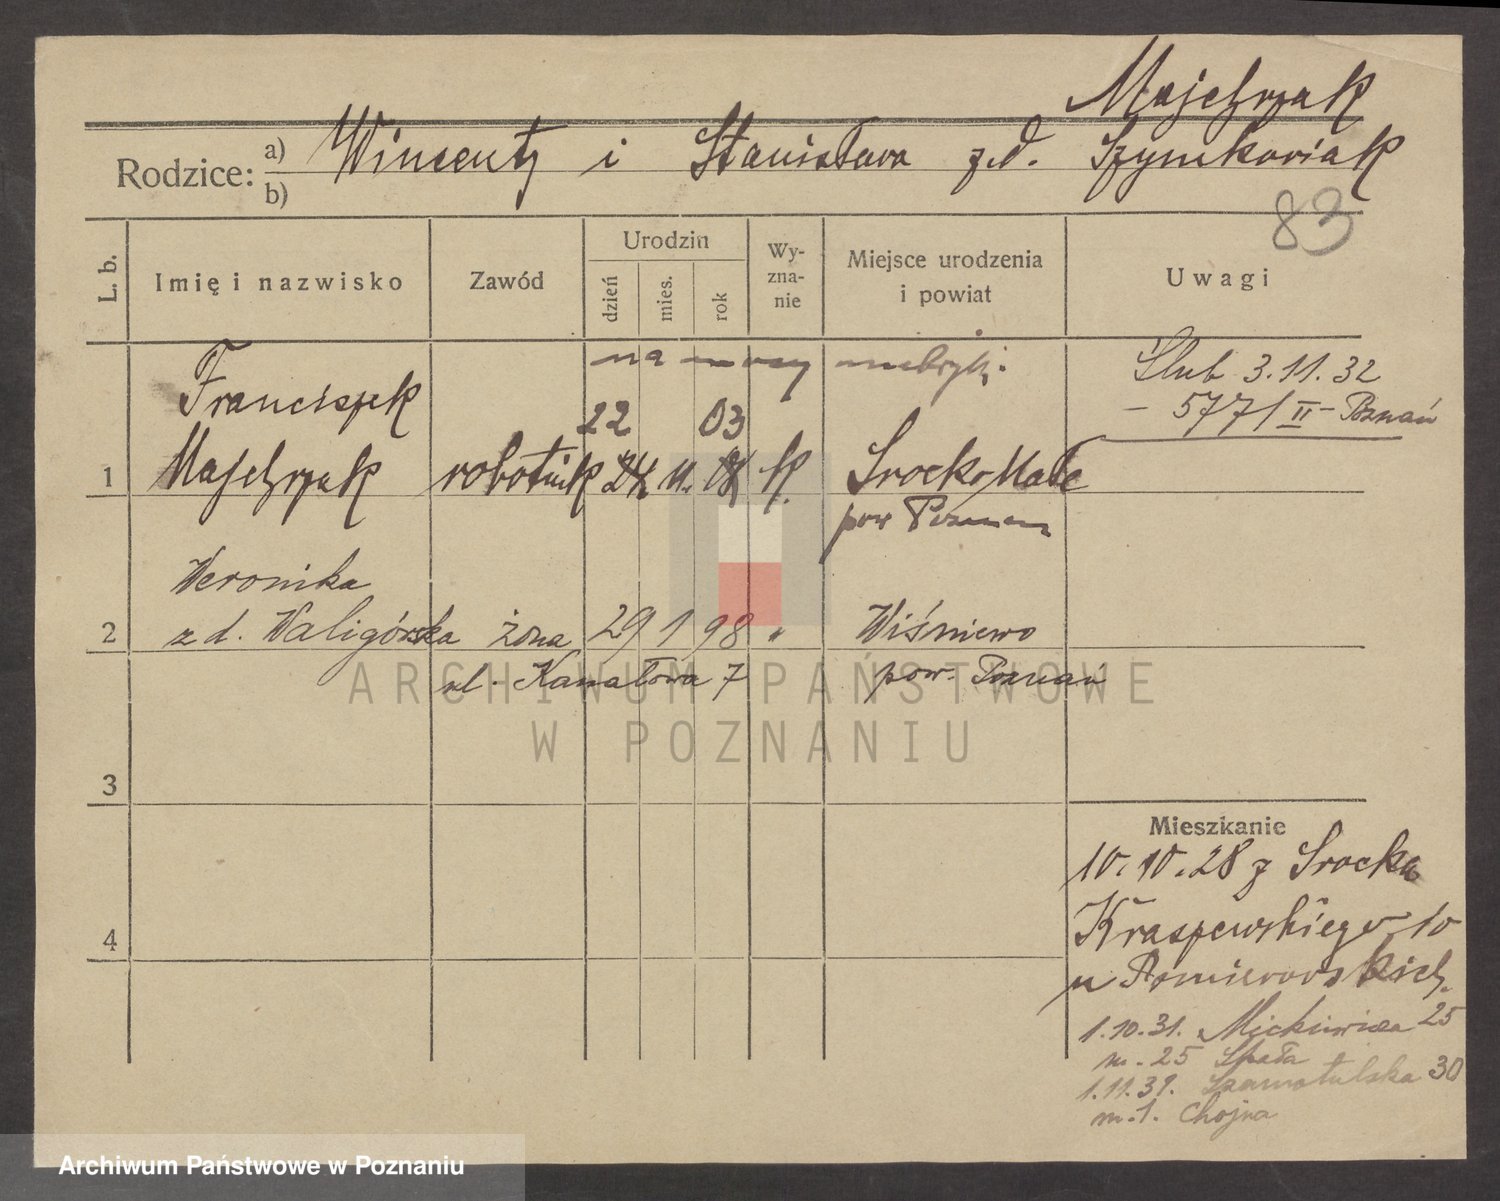 Majchrzak
Rodzice: a) Wincenty i Stanisława z d. Szymkowiak
b)
83
L. b.
Imię i nazwisko
Zawód
Urodzin
dzień
mies.
rok
Wy-
zna-
nie
Miejsce urodzenia
i powiat
Uwagi
na nowy
Ślub 3.11.32
- 577/II - Poznań
Franciszek
22 03
1 Majchrzak robotnik 11. K. Srocko Małe
pow Poznań
Weronika
2 z d. Waligórska żona 29 1 98 " Wiśniewo
ul. Kanałowa 7 pow. Poznań
ARCHIWUM PAŃSTWOWE
W POZNANIU
3
4
Mieszkanie
10.10.28 z Srocka
Kraszewskiego 10
u Pomierowskich
1.10.31. Mickiewicza 25
m. 25 Spała
1.11.31. Szamotulska 30
m. 1. Chojna
Archiwum Państwowe w Poznaniu